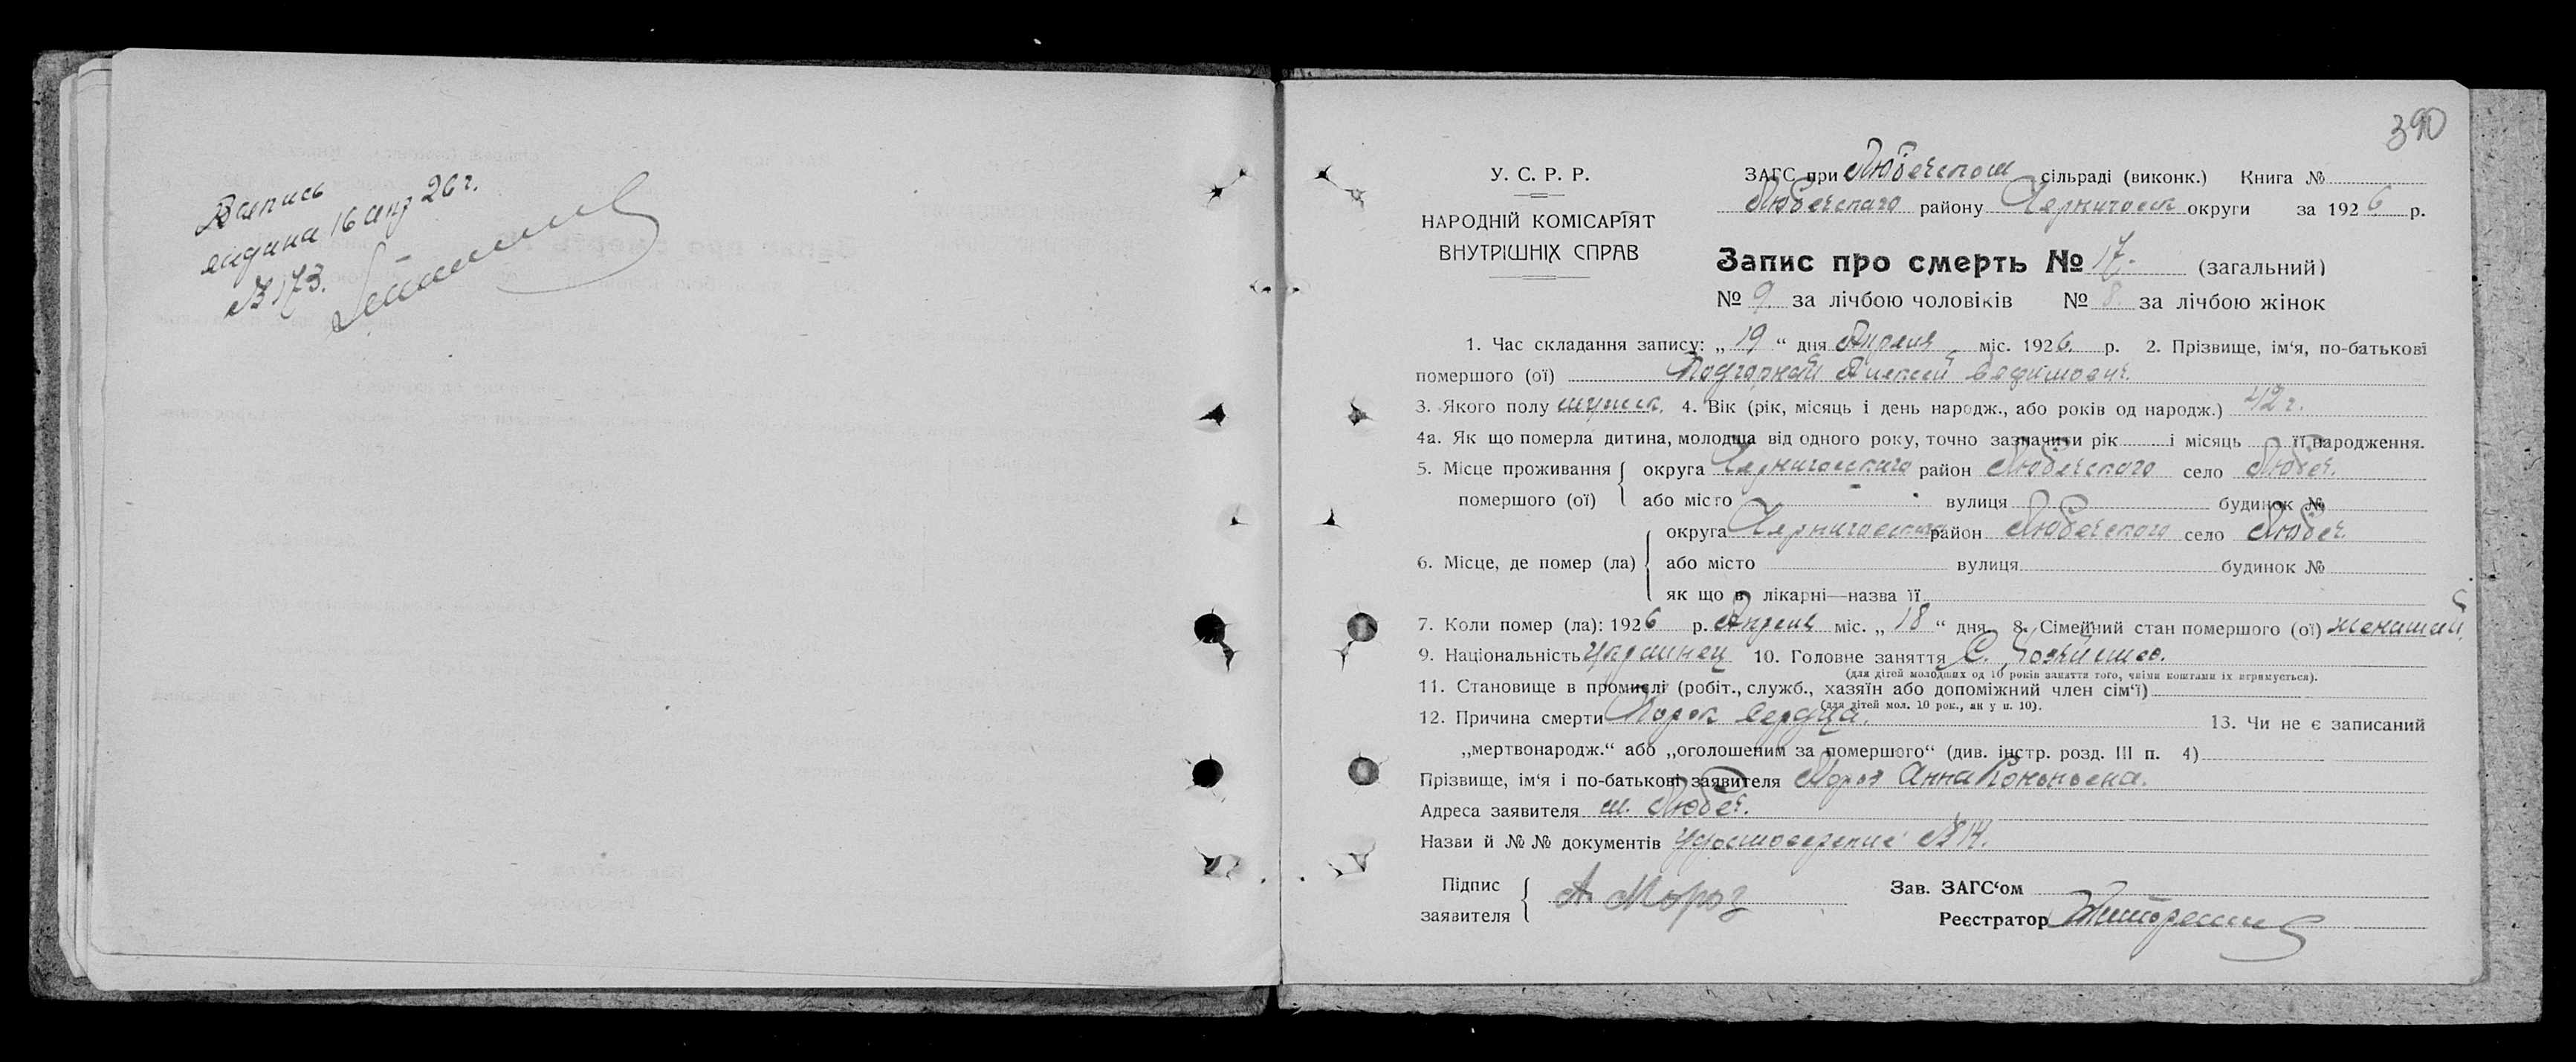 Запись
видана 16 апр 26 г.
№ 173.
390
У. С. Р. Р.
НАРОДНІЙ КОМІСАРІЯТ
ВНУТРІШНІХ СПРАВ
ЗАГС при Любечском сільраді (виконк.) Книга №
Любечскаго району Черниговск округи за 1926 р.
Запис про смерть № 17. (загальний)
№ 9. за лічбою чоловіків № 8. за лічбою жінок
1. Час складання запису: „ 19 “ дня Апреля міс. 1926. р. 2. Прізвище, ім‘я, по-батькові
помершого (ої) Подгорный Алексей Ефимович.
3. Якого полу мужск. 4. Вік (рік, місяць і день народж., або років од народж.) 42 г.
4а. Як що померла дитина, молодша від одного року, точно зазначити рік і місяць її народження.
5. Місце проживання округа Черниговскаго район Любечскаго село Любеч.
помершого (ої) або місто вулиця будинок №
округа Черниговскаго район Любечскаго село Любеч.
6. Місце, де помер (ла) або місто вулиця будинок №
як що в лікарні—назва її
7. Коли помер (ла): 1926 р. Апреля міс. „ 18 “ дня. 8. Сімейний стан помершого (ої) женатый.
9. Національність Украинец 10. Головне заняття С. Хозяйство.
(для дітей молодших од 10 років заняття того, чиїми коштами їх втримується).
11. Становище в промислі (робіт., служб., хазяїн або допоміжний член сім‘ї)
(для дітей мол. 10 рок., як у п. 10).
12. Причина смерти Порок Сердца. 13. Чи не є записаний
„мертвонародж.“ або „оголошеним за помершого“ (див. інстр. розд. III п. 4)
Прізвище, ім‘я і по-батькові заявителя Мороз Анна Кононовна.
Адреса заявителя м. Любеч.
Назви й № № документів Удостоверение № 14.
Підпис
заявителя
А. Мороз
Зав. ЗАГС‘ом
Реєстратор